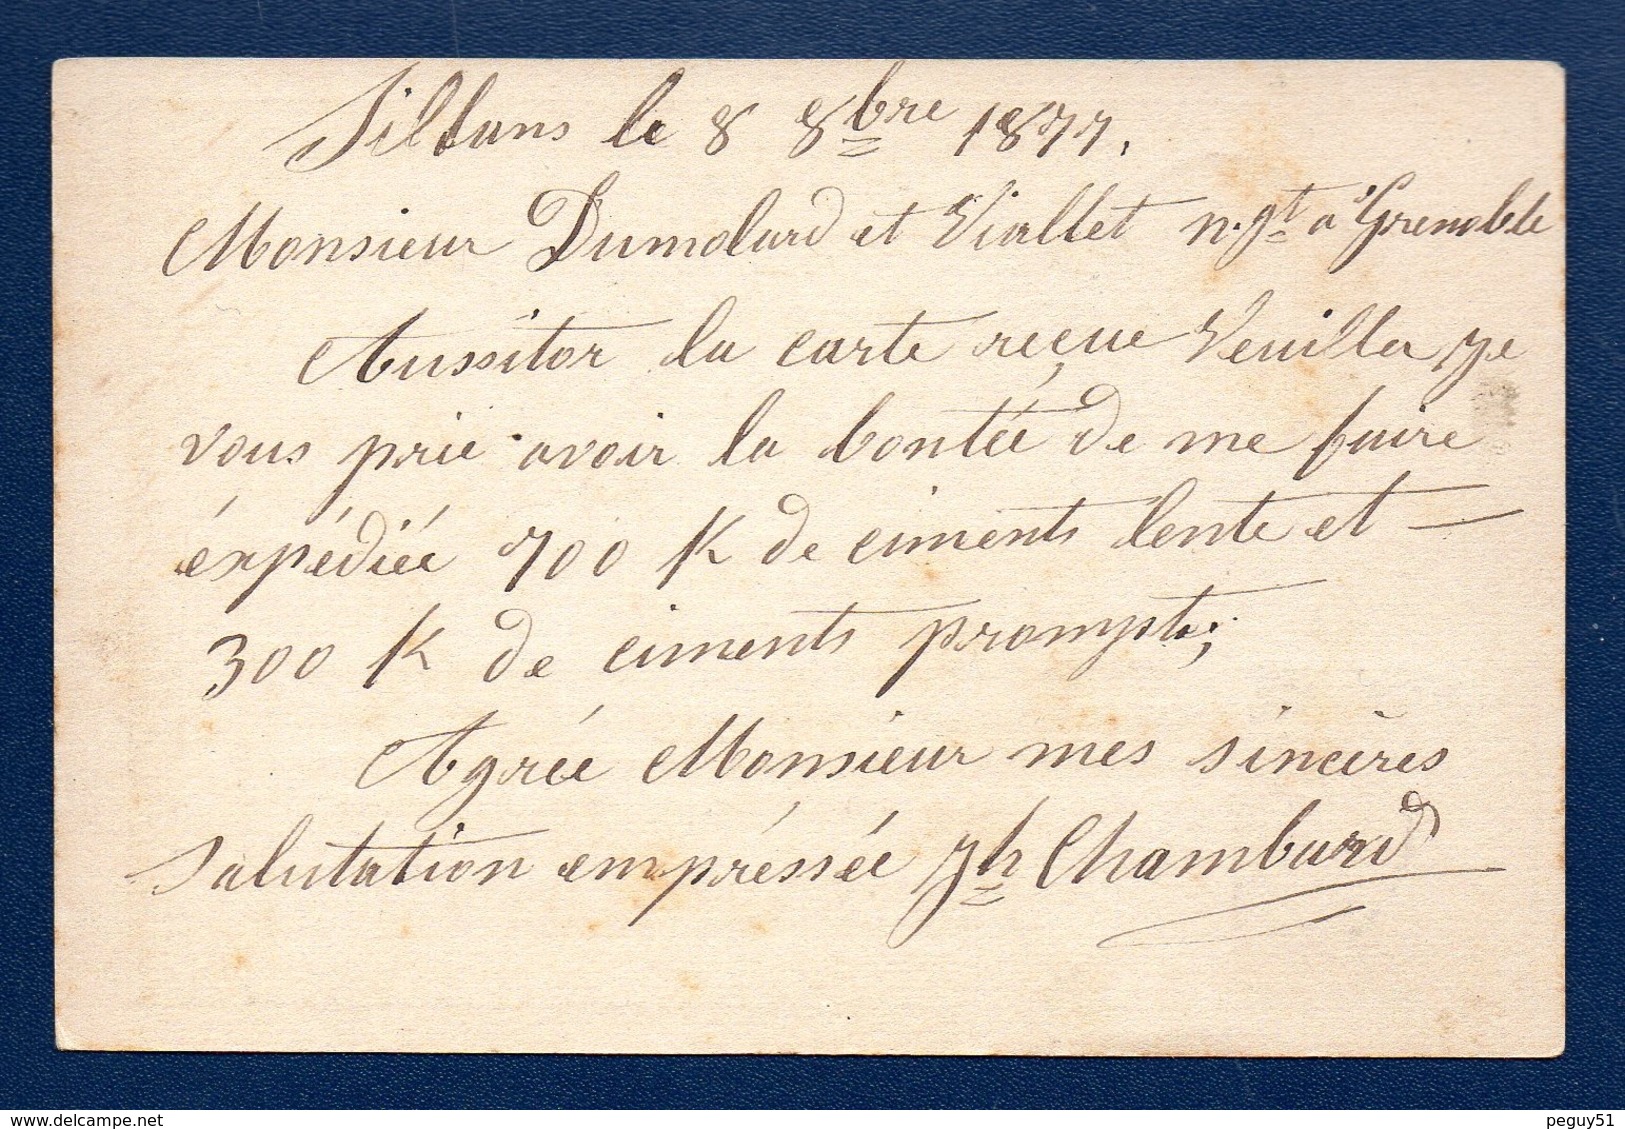 Sillans le 8 8bre 1877.
Monsieur Dumolard et Viallet n.gt a Grenoble
Aussitor la carte reçue Veuiller je
vous prie avoir la bontée de me faire
éxpédiée 700 K de ciments lente et
300 K de ciments prompte;
Agrée Monsieur mes sincères
salutation empréssée Jh Chambard
peguy51